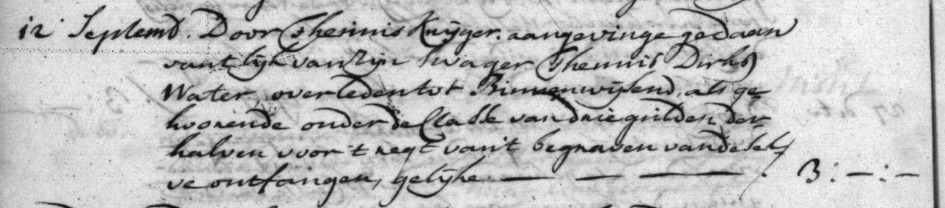 12 Septemb. Door Theunis Knijger. aangevinge gedaen
vant lijk van Zijn Swager Theunis Dirksz
Water overleden tot Binnenwijsend, als ge
hoorende onder de Classe van drie gulden der
halven voor 't regt van't begraven van de sel,
ve ontfangen, gelijke — — — . 3:—:—